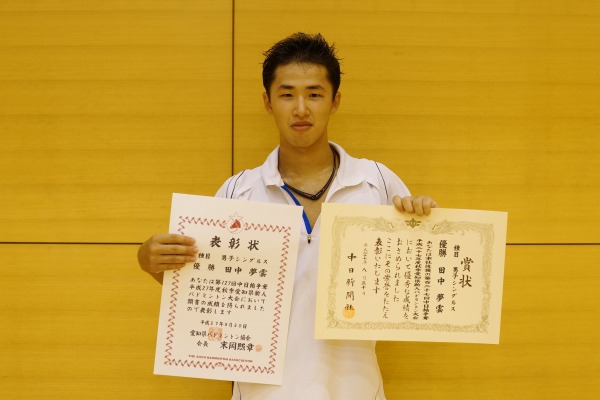 表彰状
種目 男子シングルス
優勝 田中 夢雲
あなたは第127回中日他争奪
平成27年度秋季愛知県新人
バドミントン大会において
頭書の成績を修められました
ので表彰します
平成27年9月20日
愛知県バドミントン協会
会長 末岡熙章
THE AICHI BADMINTON ASSOCIATION
賞状
種目 男子シングルス
優勝 田中 夢雲
において優秀な成績を
おさめられました
ここにその栄誉をたたえ
表彰いたします
中日新聞社